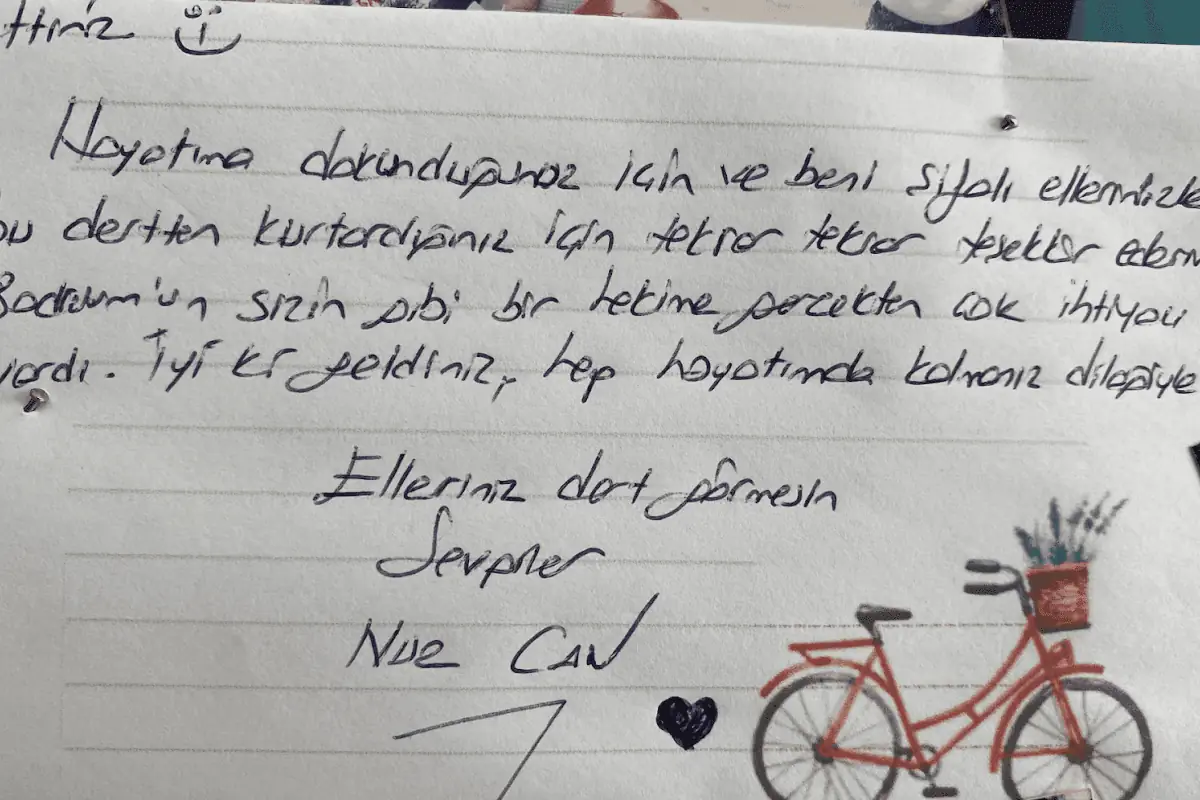 ttiniz
Hayatıma dokunduğunuz için ve beni şifalı ellerinizle
bu dertten kurtardığınız için tekrar tekrar teşekkür ederim
Bodrum'un sizin gibi bir hekime gerçekten çok ihtiyacı
vardı. İyi ki geldiniz, hep hayatımda kalmanız dileğiyle
Elleriniz dert görmesin
Sevgiler
Nur CAN